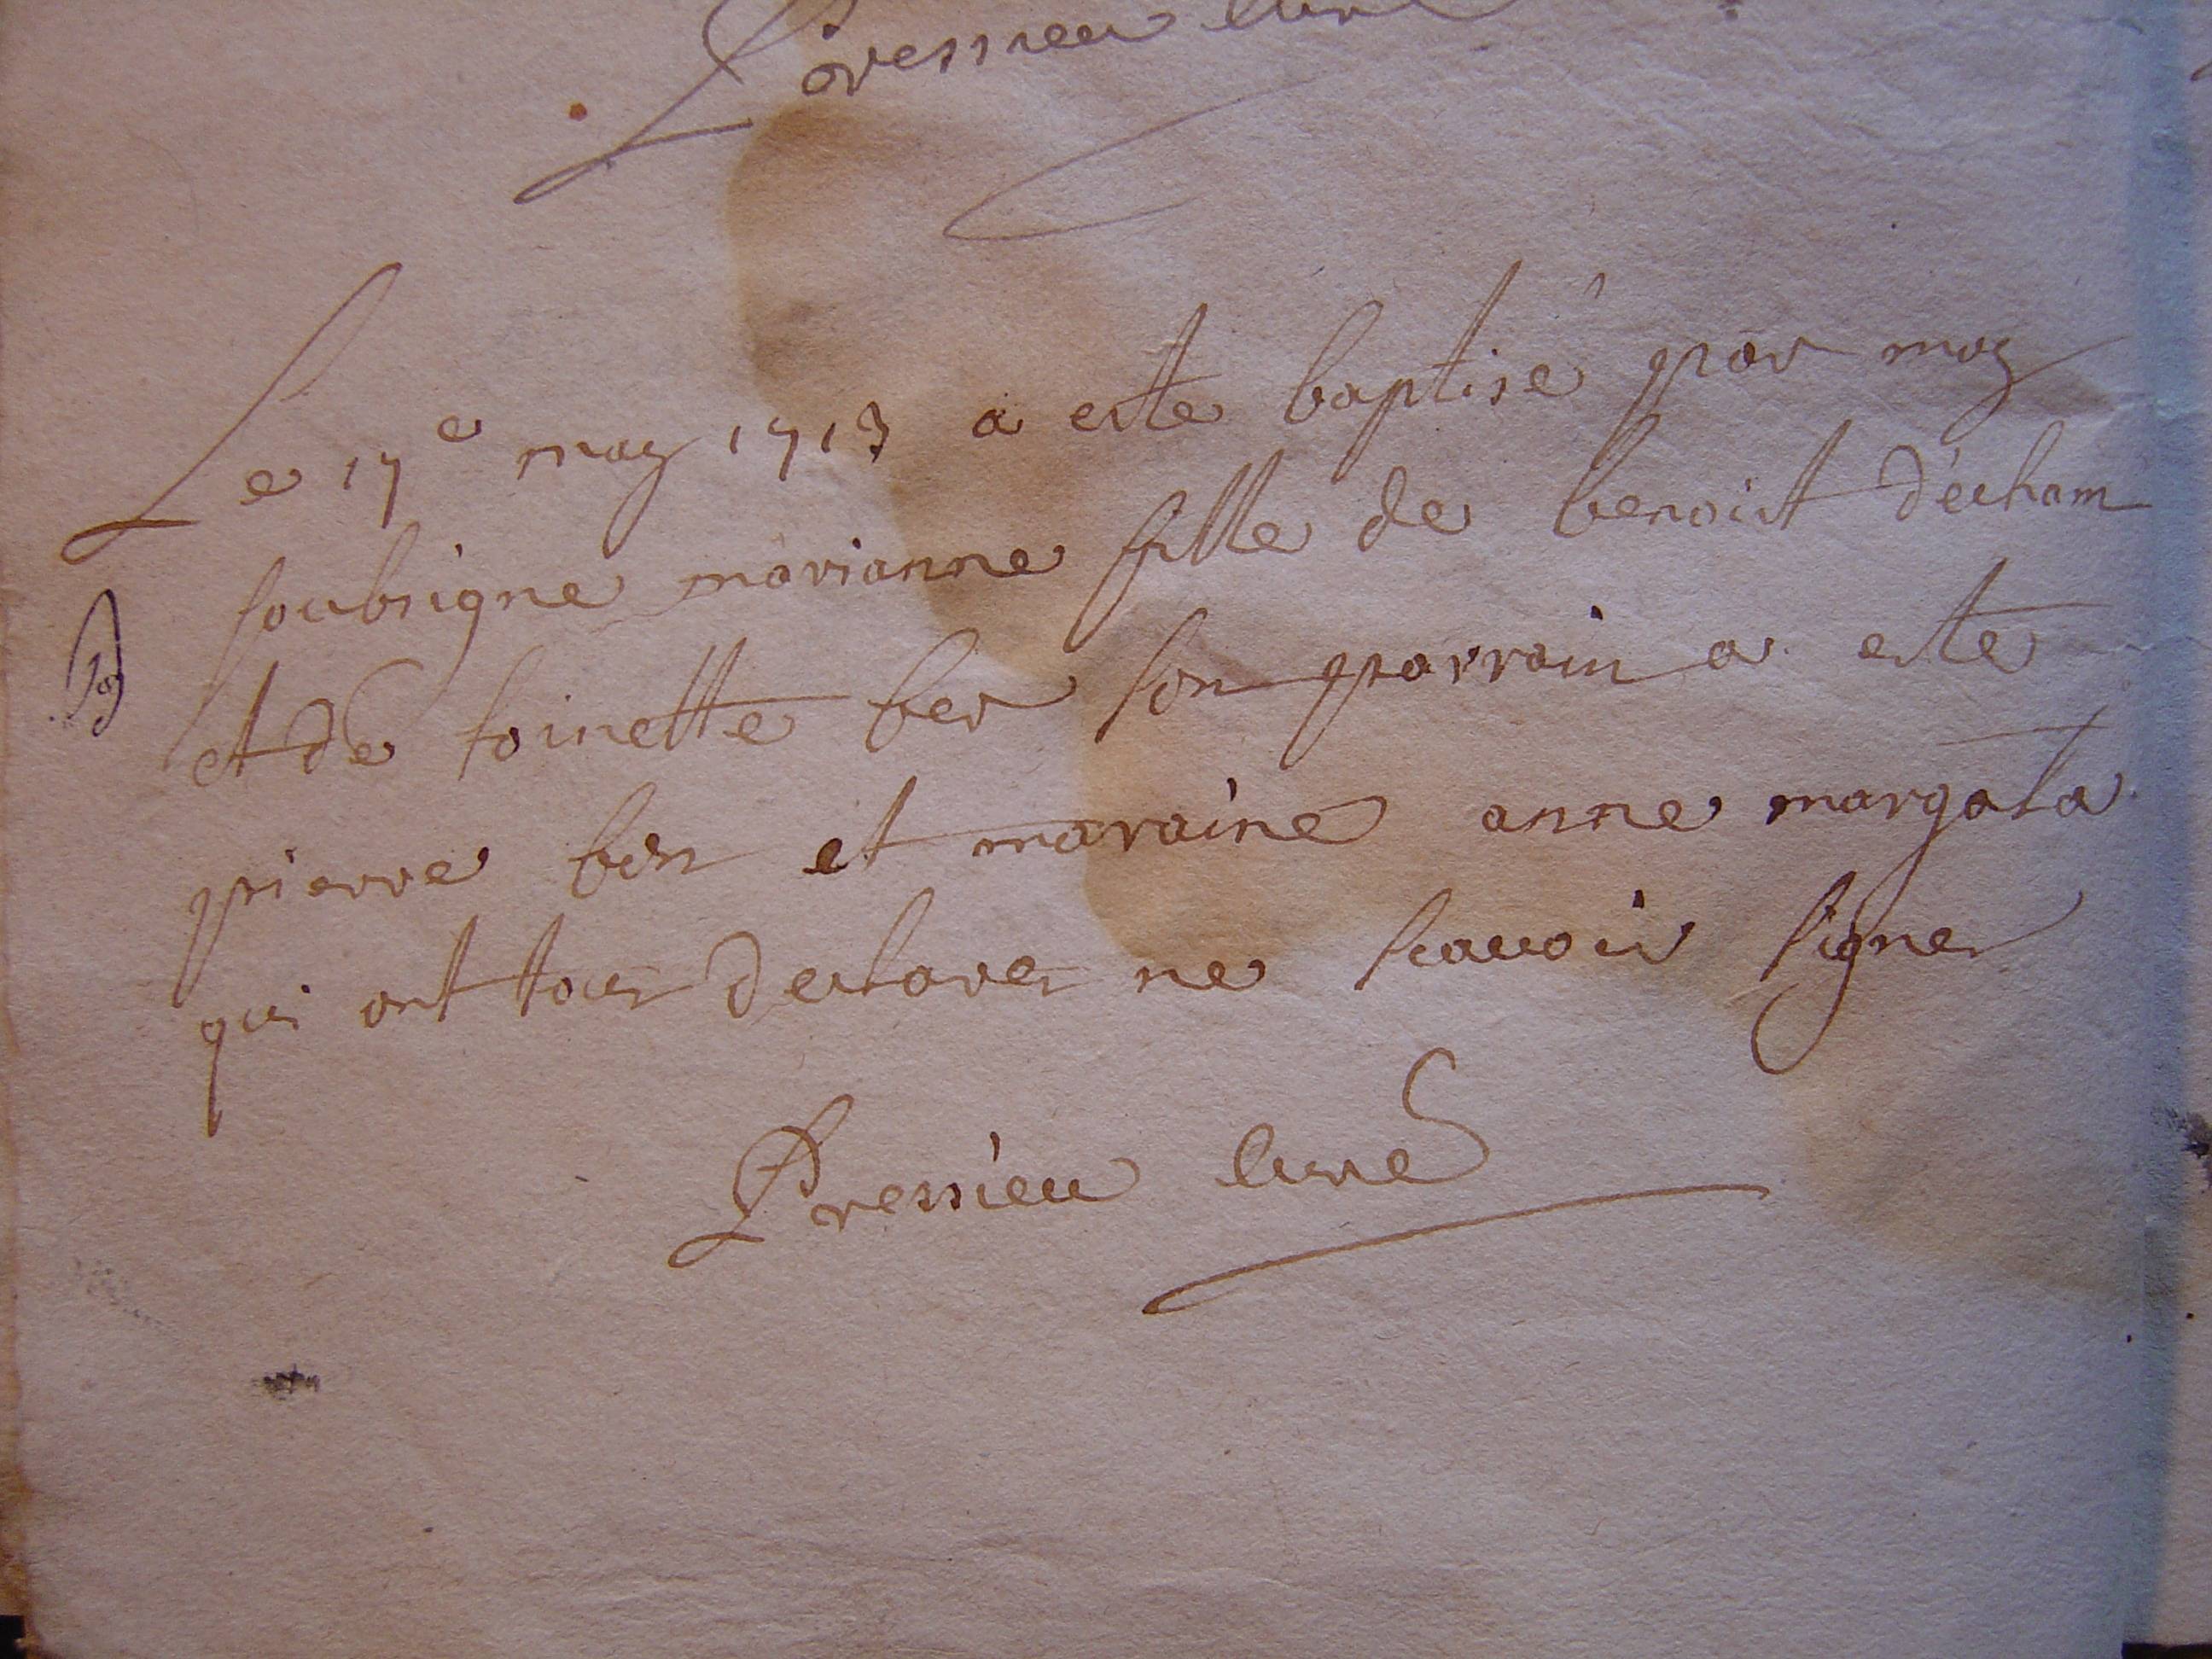 Pressieu Curé
Le 17e may 1713 a este baptisé par moy
soubsigne marianne fille de benoist décham
et de toinette ber son parrain a este
pierre bon et maraine anne margata
qui ont tous declares ne scauoir signer
Pressieu Curé